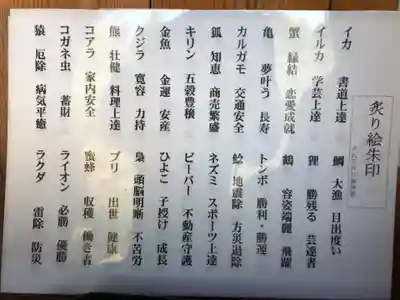 炙り絵朱印
イカ 書道上達
イルカ 学芸上達
蟹 縁結 恋愛成就
亀 夢叶う 長寿
カルガモ 交通安全
狐 知恵 商売繁盛
キリン 五穀豊穣
金魚 金運 安産
クジラ 寛容 力持
熊 壮健 料理上達
コアラ 家内安全
コガネ虫 蓄財
猿 厄除 病気平癒
鯛 大漁 目出度い
狸 勝残る 芸達者
鶴 容姿端麗 飛躍
トンボ 勝利・勝運
鯰 地震除 方災退除
ネズミ スポーツ上達
ビーバー 不動産守護
ひよこ 子授け 成長
梟 頭脳明晰 不苦労
ブリ 出世 健康
蜜蜂 収穫 働き者
ライオン 必勝 優勝
ラクダ 雷除 防災